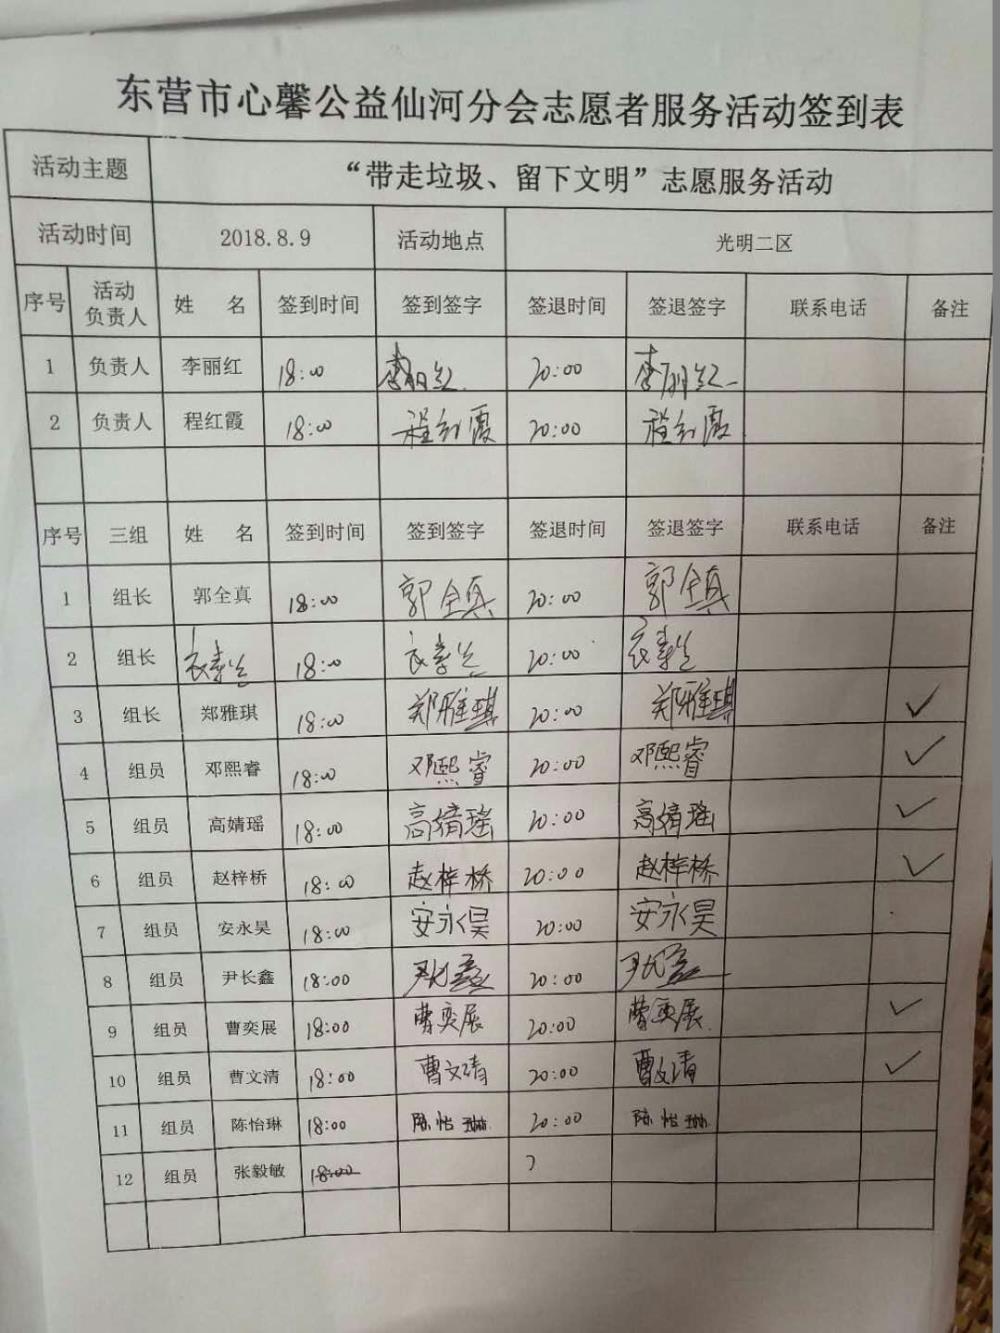 东营市心馨公益仙河分会志愿者服务活动签到表
活动主题 “带走垃圾、留下文明”志愿服务活动
活动时间 2018.8.9 活动地点 光明二区
序号 活动负责人 姓 名 签到时间 签到签字 签退时间 签退签字 联系电话 备注
1 负责人 李丽红 18:00 李丽红 20:00 李丽红
2 负责人 程红霞 18:00 程红霞 20:00 程红霞
序号 三组 姓 名 签到时间 签到签字 签退时间 签退签字 联系电话 备注
1 组长 郭全真 18:00 郭全真 20:00 郭全真
2 组长 18:00 20:00
3 组长 郑雅琪 18:00 郑雅琪 20:00 郑雅琪 ✓
4 组员 邓熙睿 18:00 邓熙睿 20:00 邓熙睿 ✓
5 组员 高婧瑶 18:00 高婧瑶 20:00 高婧瑶 ✓
6 组员 赵梓桥 18:00 赵梓桥 20:00 赵梓桥 ✓
7 组员 安永昊 18:00 安永昊 20:00 安永昊
8 组员 尹长鑫 18:00 尹长鑫 20:00 尹长鑫
9 组员 曹奕展 18:00 曹奕展 20:00 曹奕展 ✓
10 组员 曹文清 18:00 曹文清 20:00 曹文清 ✓
11 组员 陈怡琳 18:00 陈怡琳 20:00 陈怡琳
12 组员 张毅敏 18:00